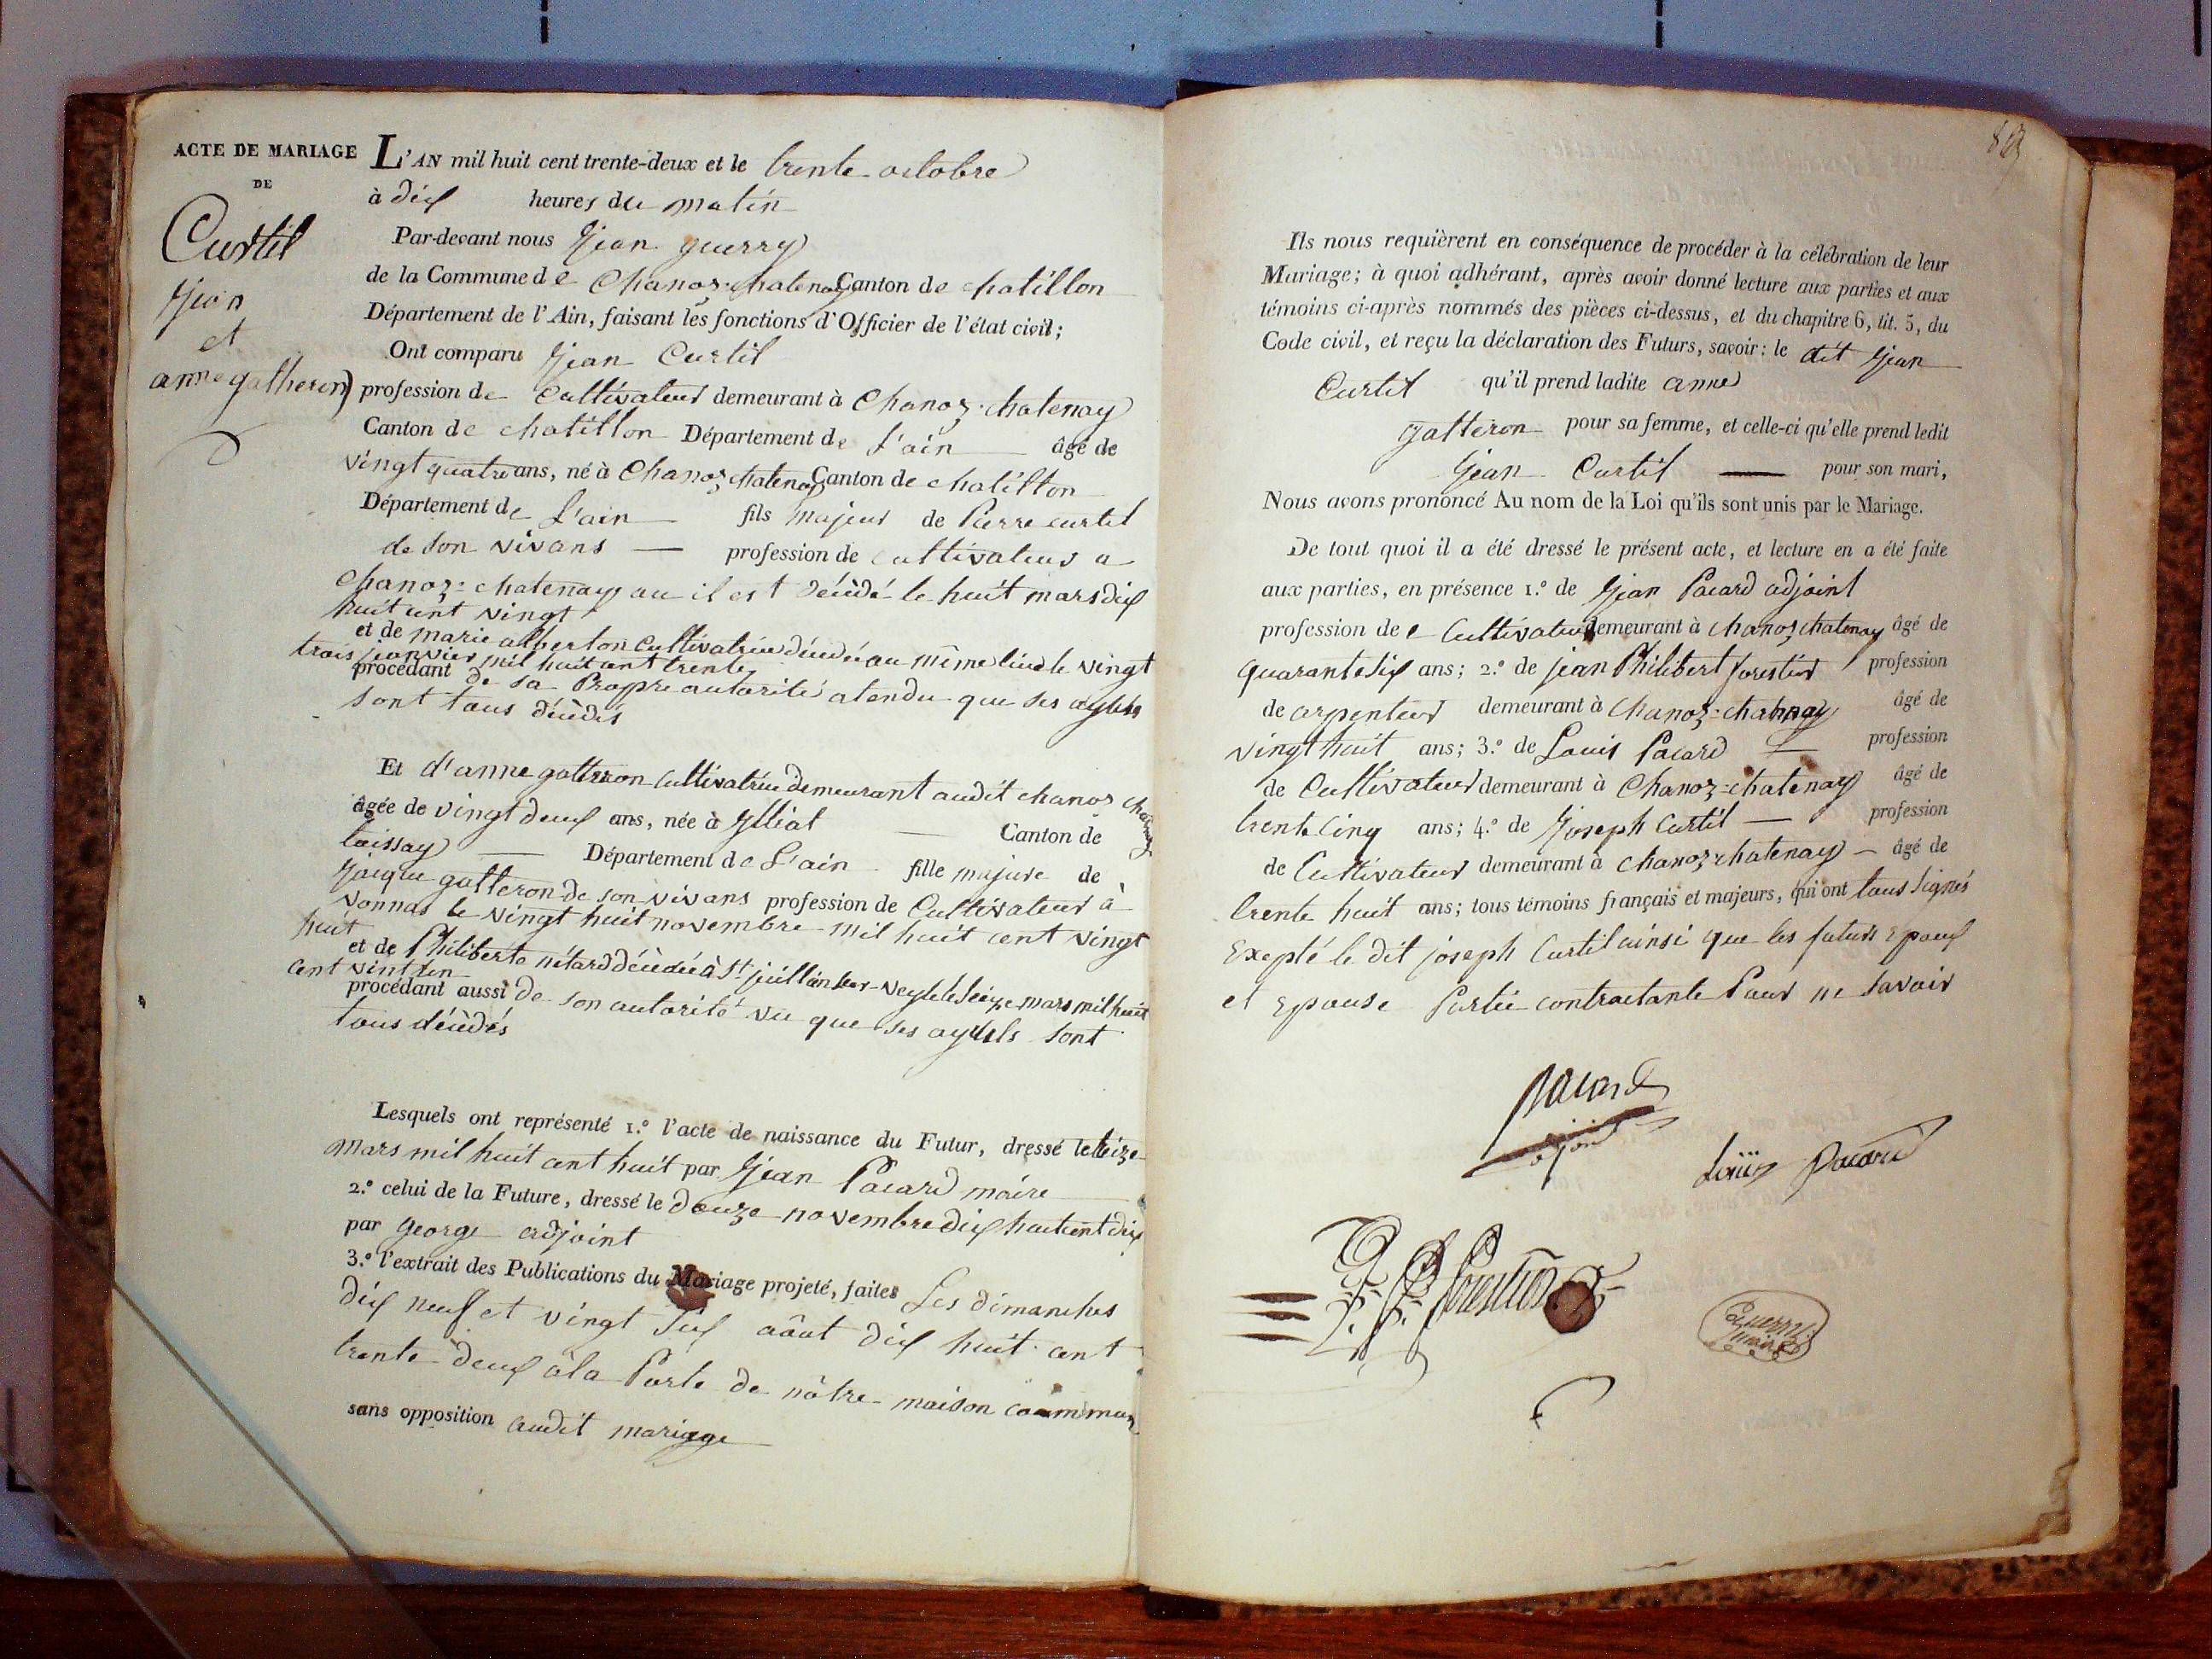 ACTE DE MARIAGE
DE
Curtil
Jean
et
anne gatheron
L'AN mil huit cent trente-deux et le trente octobre
à dix heures du matin
Par-devant nous Jean guerry
de la Commune de Chanoz-chatenay Canton de chatillon
Département de l'Ain, faisant les fonctions d'Officier de l'état civil;
Ont comparu Jean Curtil
profession de Cultivateur demeurant à Chanoz-chatenay
Canton de chatillon Département de L'ain âgé de
vingt quatre ans, né à Chanoz chatenay Canton de chatillon
Département de L'ain fils majeur de Pierre curtil
de son vivans — profession de cultivateur a
Chanoz-chatenay ou il est décédé le huit mars dix
huit cent vingt
et de marie alberton cultivatrice décédée au même lieu le vingt
trois janvier mil huit cent trente
procédant de sa Propre autorité atendu que ses ayeuls
sont tous décédés
Et d'anne gatteron cultivatrice demeurant audit chanoz chatenay
âgée de vingt deux ans, née à Illiat — Canton de
toissay — Département de L'ain fille majure de
Jacque gatteron de son vivans profession de Cultivateur à
vonnas le vingt huit novembre mil huit cent vingt
huit
et de Philiberte nétard décédée à St. juillin sur-veyle le seize mars mil huit
cent vint un
procédant aussi de son autorité vu que ses ayeuls sont
tous décédés
Lesquels ont représenté 1.º l'acte de naissance du Futur, dressé le treize
mars mil huit cent huit par Jean Pacard maire
2.º celui de la Future, dressé le douze novembre dix huit cent dix
par george adjoint
3.º l'extrait des Publications du Mariage projeté, faites Les dimanches
dix neuf et vingt six août dix huit cent
trente deux à la Porte de nôtre maison commun
sans opposition audit mariage
Ils nous requièrent en conséquence de procéder à la célébration de leur
Mariage; à quoi adhérant, après avoir donné lecture aux parties et aux
témoins ci-après nommés des pièces ci-dessus, et du chapitre 6, tit. 5, du
Code civil, et reçu la déclaration des Futurs, savoir: le dit Jean
Curtil qu'il prend ladite anne
gatteron pour sa femme, et celle-ci qu'elle prend ledit
Jean Curtil — pour son mari,
Nous avons prononcé Au nom de la Loi qu'ils sont unis par le Mariage.
De tout quoi il a été dressé le présent acte, et lecture en a été faite
aux parties, en présence 1.º de Jean Pacard adjoint
profession de Cultivateur demeurant à chanoz chatenay âgé de
quarante six ans; 2.º de jean Philibert forestier profession
de arpenteur demeurant à Chanoz-chatenay âgé de
vingt huit ans; 3.º de Louis Pacard — profession
de Cultivateur demeurant à Chanoz-chatenay âgé de
trente cinq ans; 4.º de Joseph Curtil — profession
de Cultivateur demeurant à chanoz chatenay — âgé de
trente huit ans; tous témoins français et majeurs, qui ont tous signés
Exepté le dit joseph Curtil ainsi que les futurs Epoux
et Epouse Partie contractante Pour ne savoir
pacard
adjoint
Louis Pacard
forestier
Guerry
maire